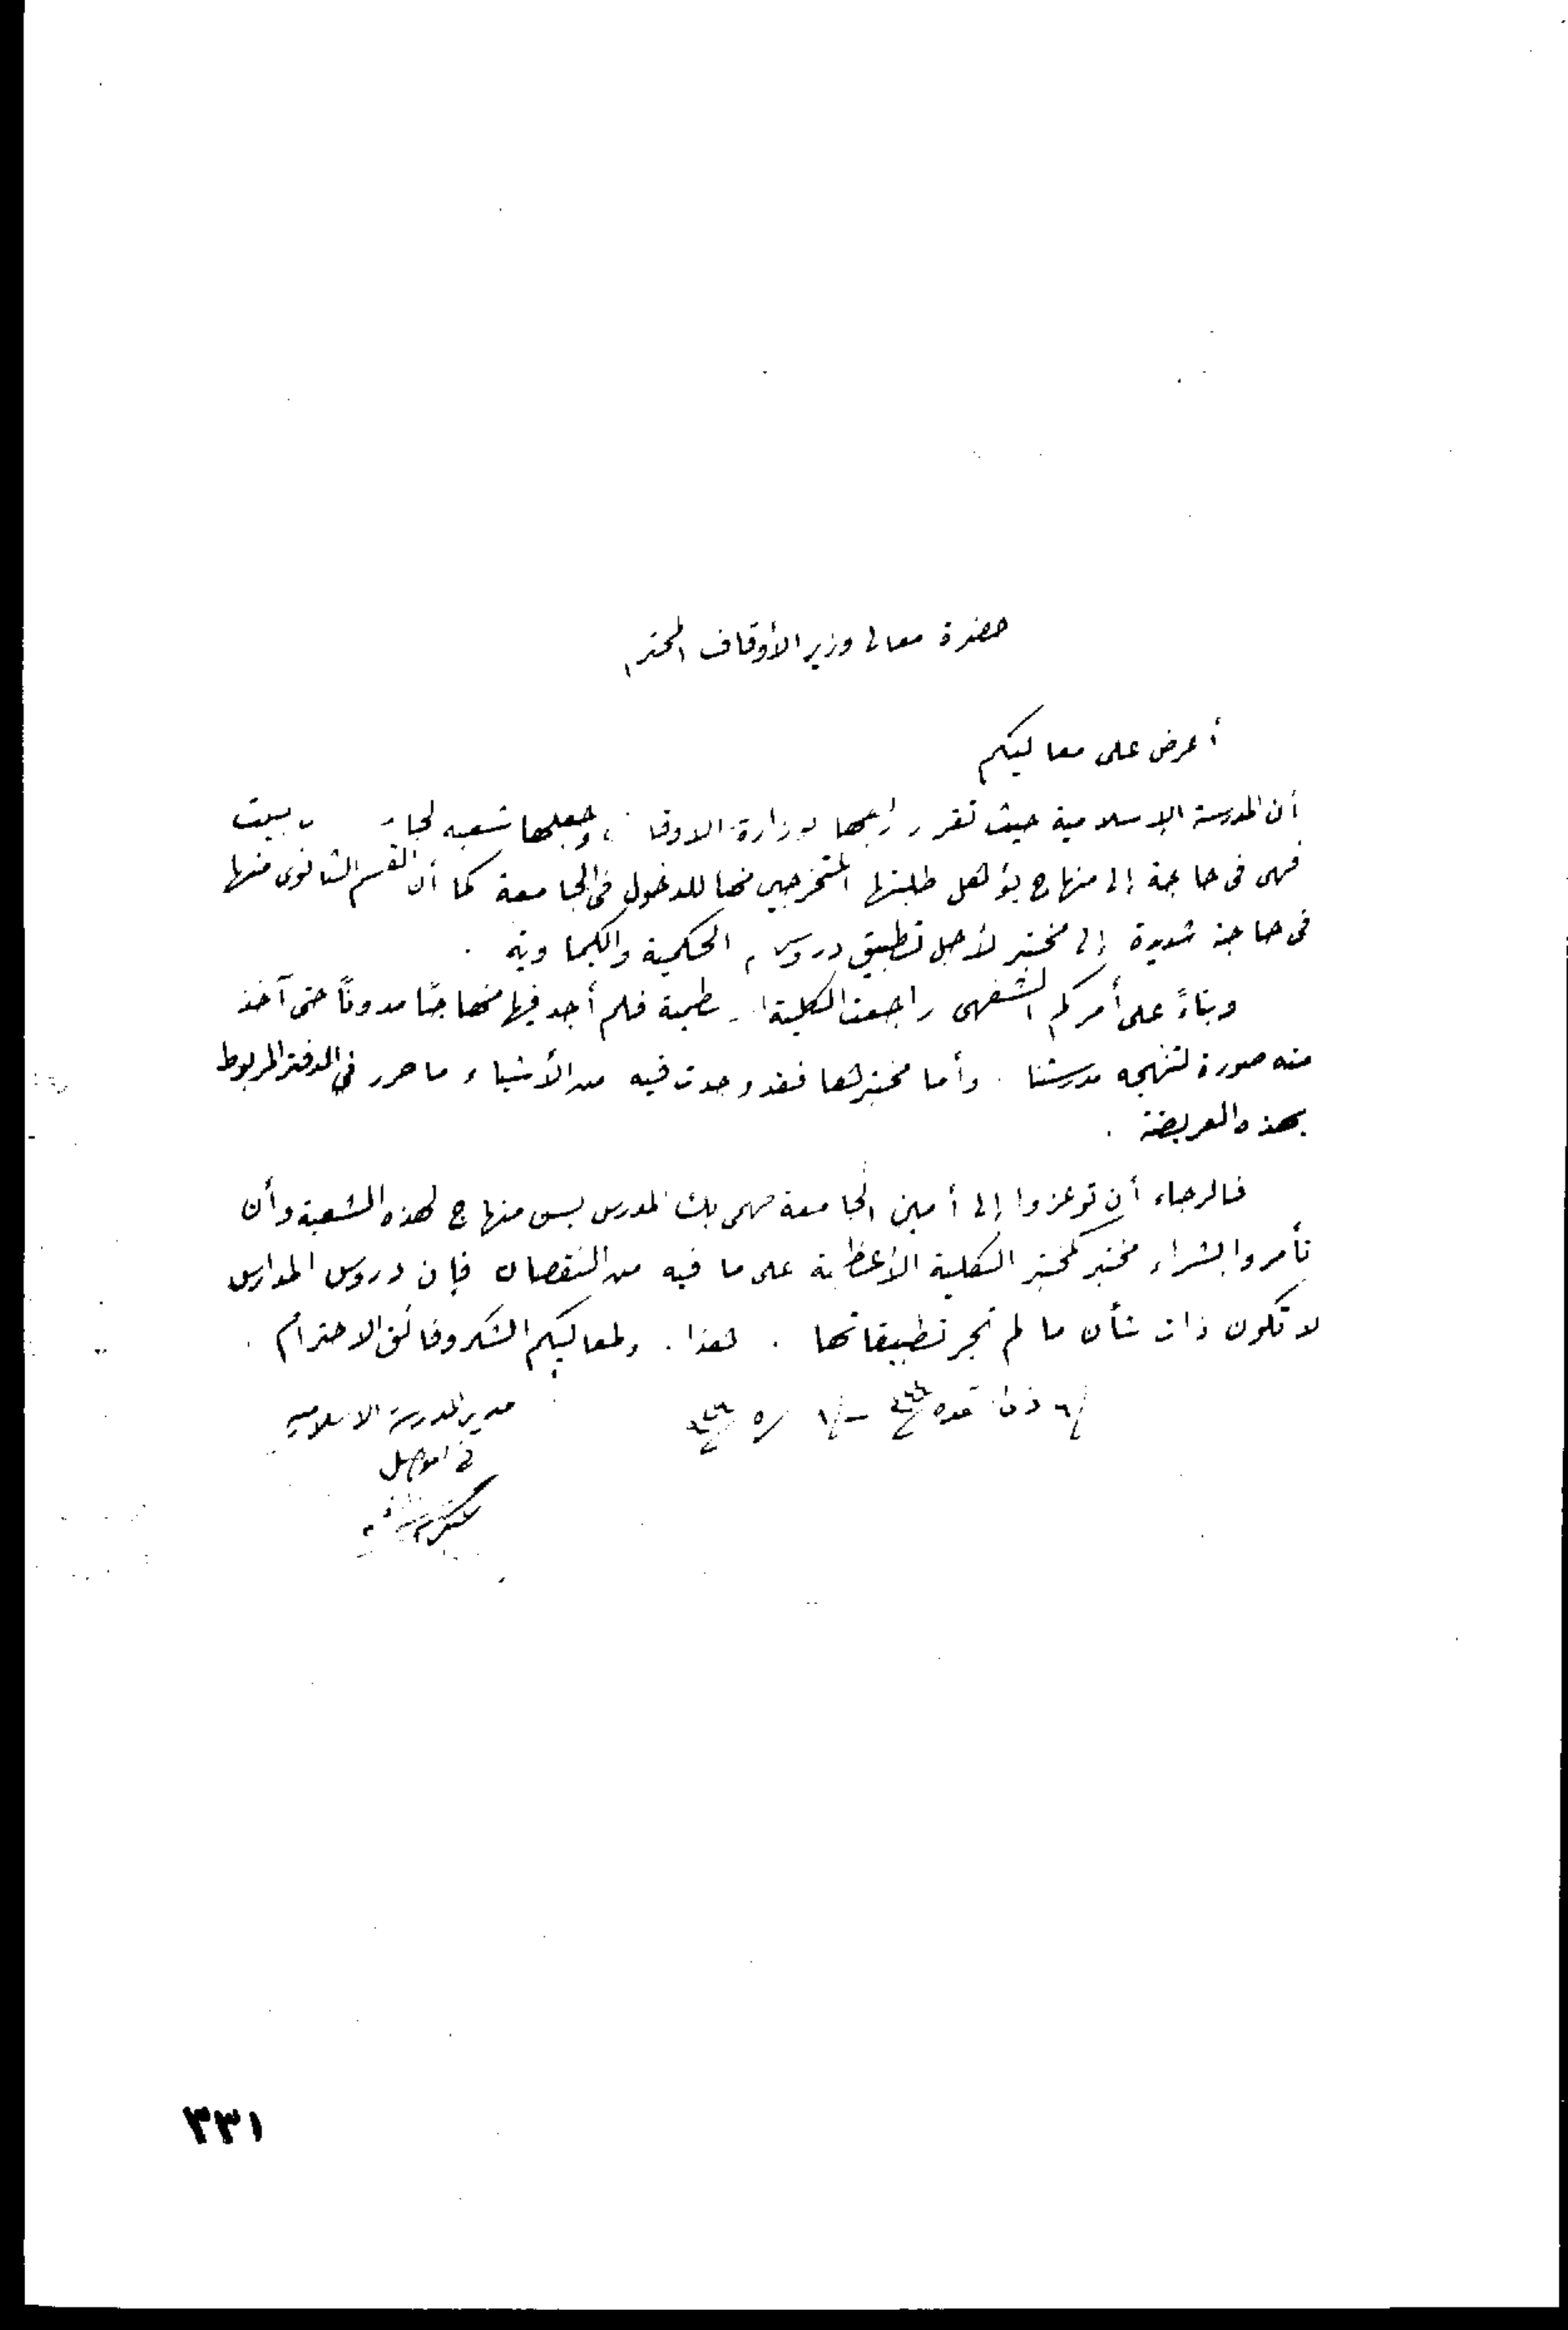 حضرة معالى وزير الأوقاف المحترم
أعرض على معاليكم
أن المدرسة الإسلامية حيث تقرر ربطها بوزارة الاوقاف وجعلها شعبه
فهى فى حاجة إلى منهاج يؤهل طلبتها المتخرجين منها للدخول فى الجامعة كما أن القسم الثانوى منها
فى حاجة شديدة إلى مختبر لأجل تطبيق دروس الحكمية والكيماوية .
وبناءً على أمركم الشفهى راجعت الكلية فلم أجد فيها منهاجًا مدونًا حتى آخذ
منه صورة لتنهجه مدرستنا . وأما مختبرها فقد وجدت فيه من الأشياء ما حرر فى الدفتر المربوط
بهذه العريضة .
فالرجاء أن توعزوا إلى أمين الجامعة فهمى بك المدرس بسن منهاج لهذه الشعبة وأن
تأمروا بشراء مختبر كمختبر الكلية الأعظمية على ما فيه من النقصان فإن دروس المدارس
لا تكون ذات شأن ما لم تجر تطبيقاتها . هذا . ولمعاليكم الشكر وفائق الاحترام .
مدير المدرسة الاسلامية
فى الموصل
٣٣١